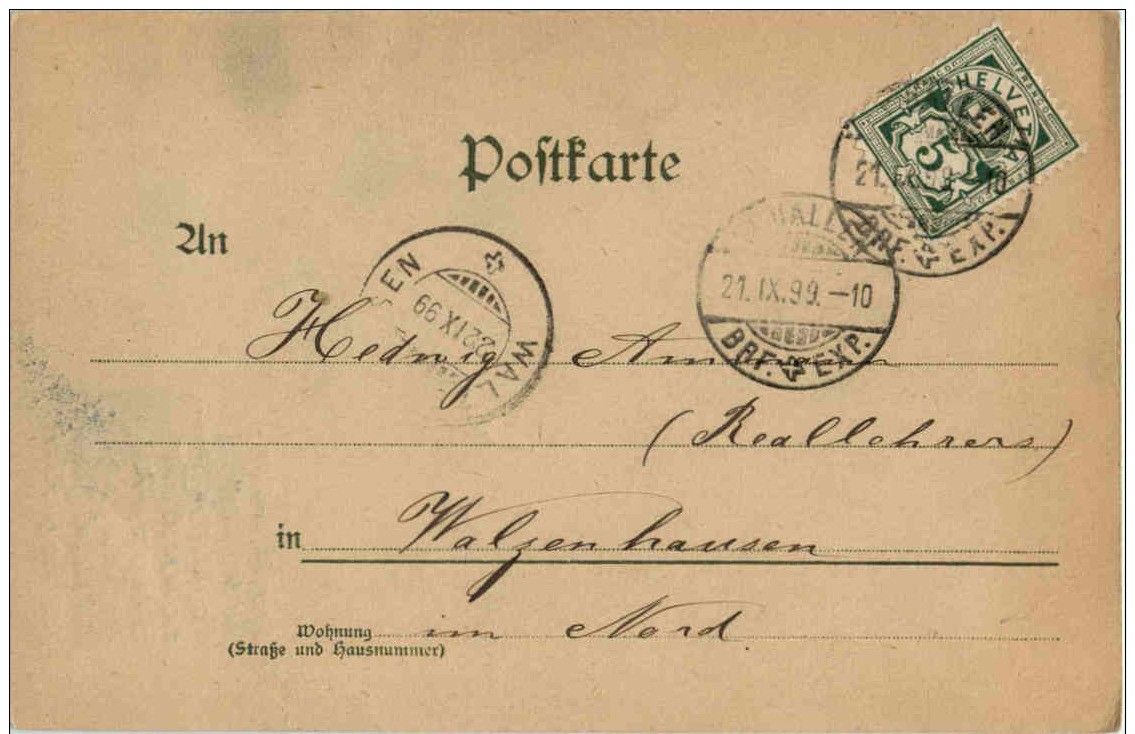 FRANCO HELVETIA FRANCO
5
KEN
21. IX. 99. –10
BRF. EXP.
Postkarte
ST. GALLEN
21. IX. 99. –10
BRF. EXP.
An
WAL EN
22 IX 99
Hedwig Ammann
(Reallehrers)
in Walzenhausen
Wohnung im Nord
(Straße und Hausnummer)